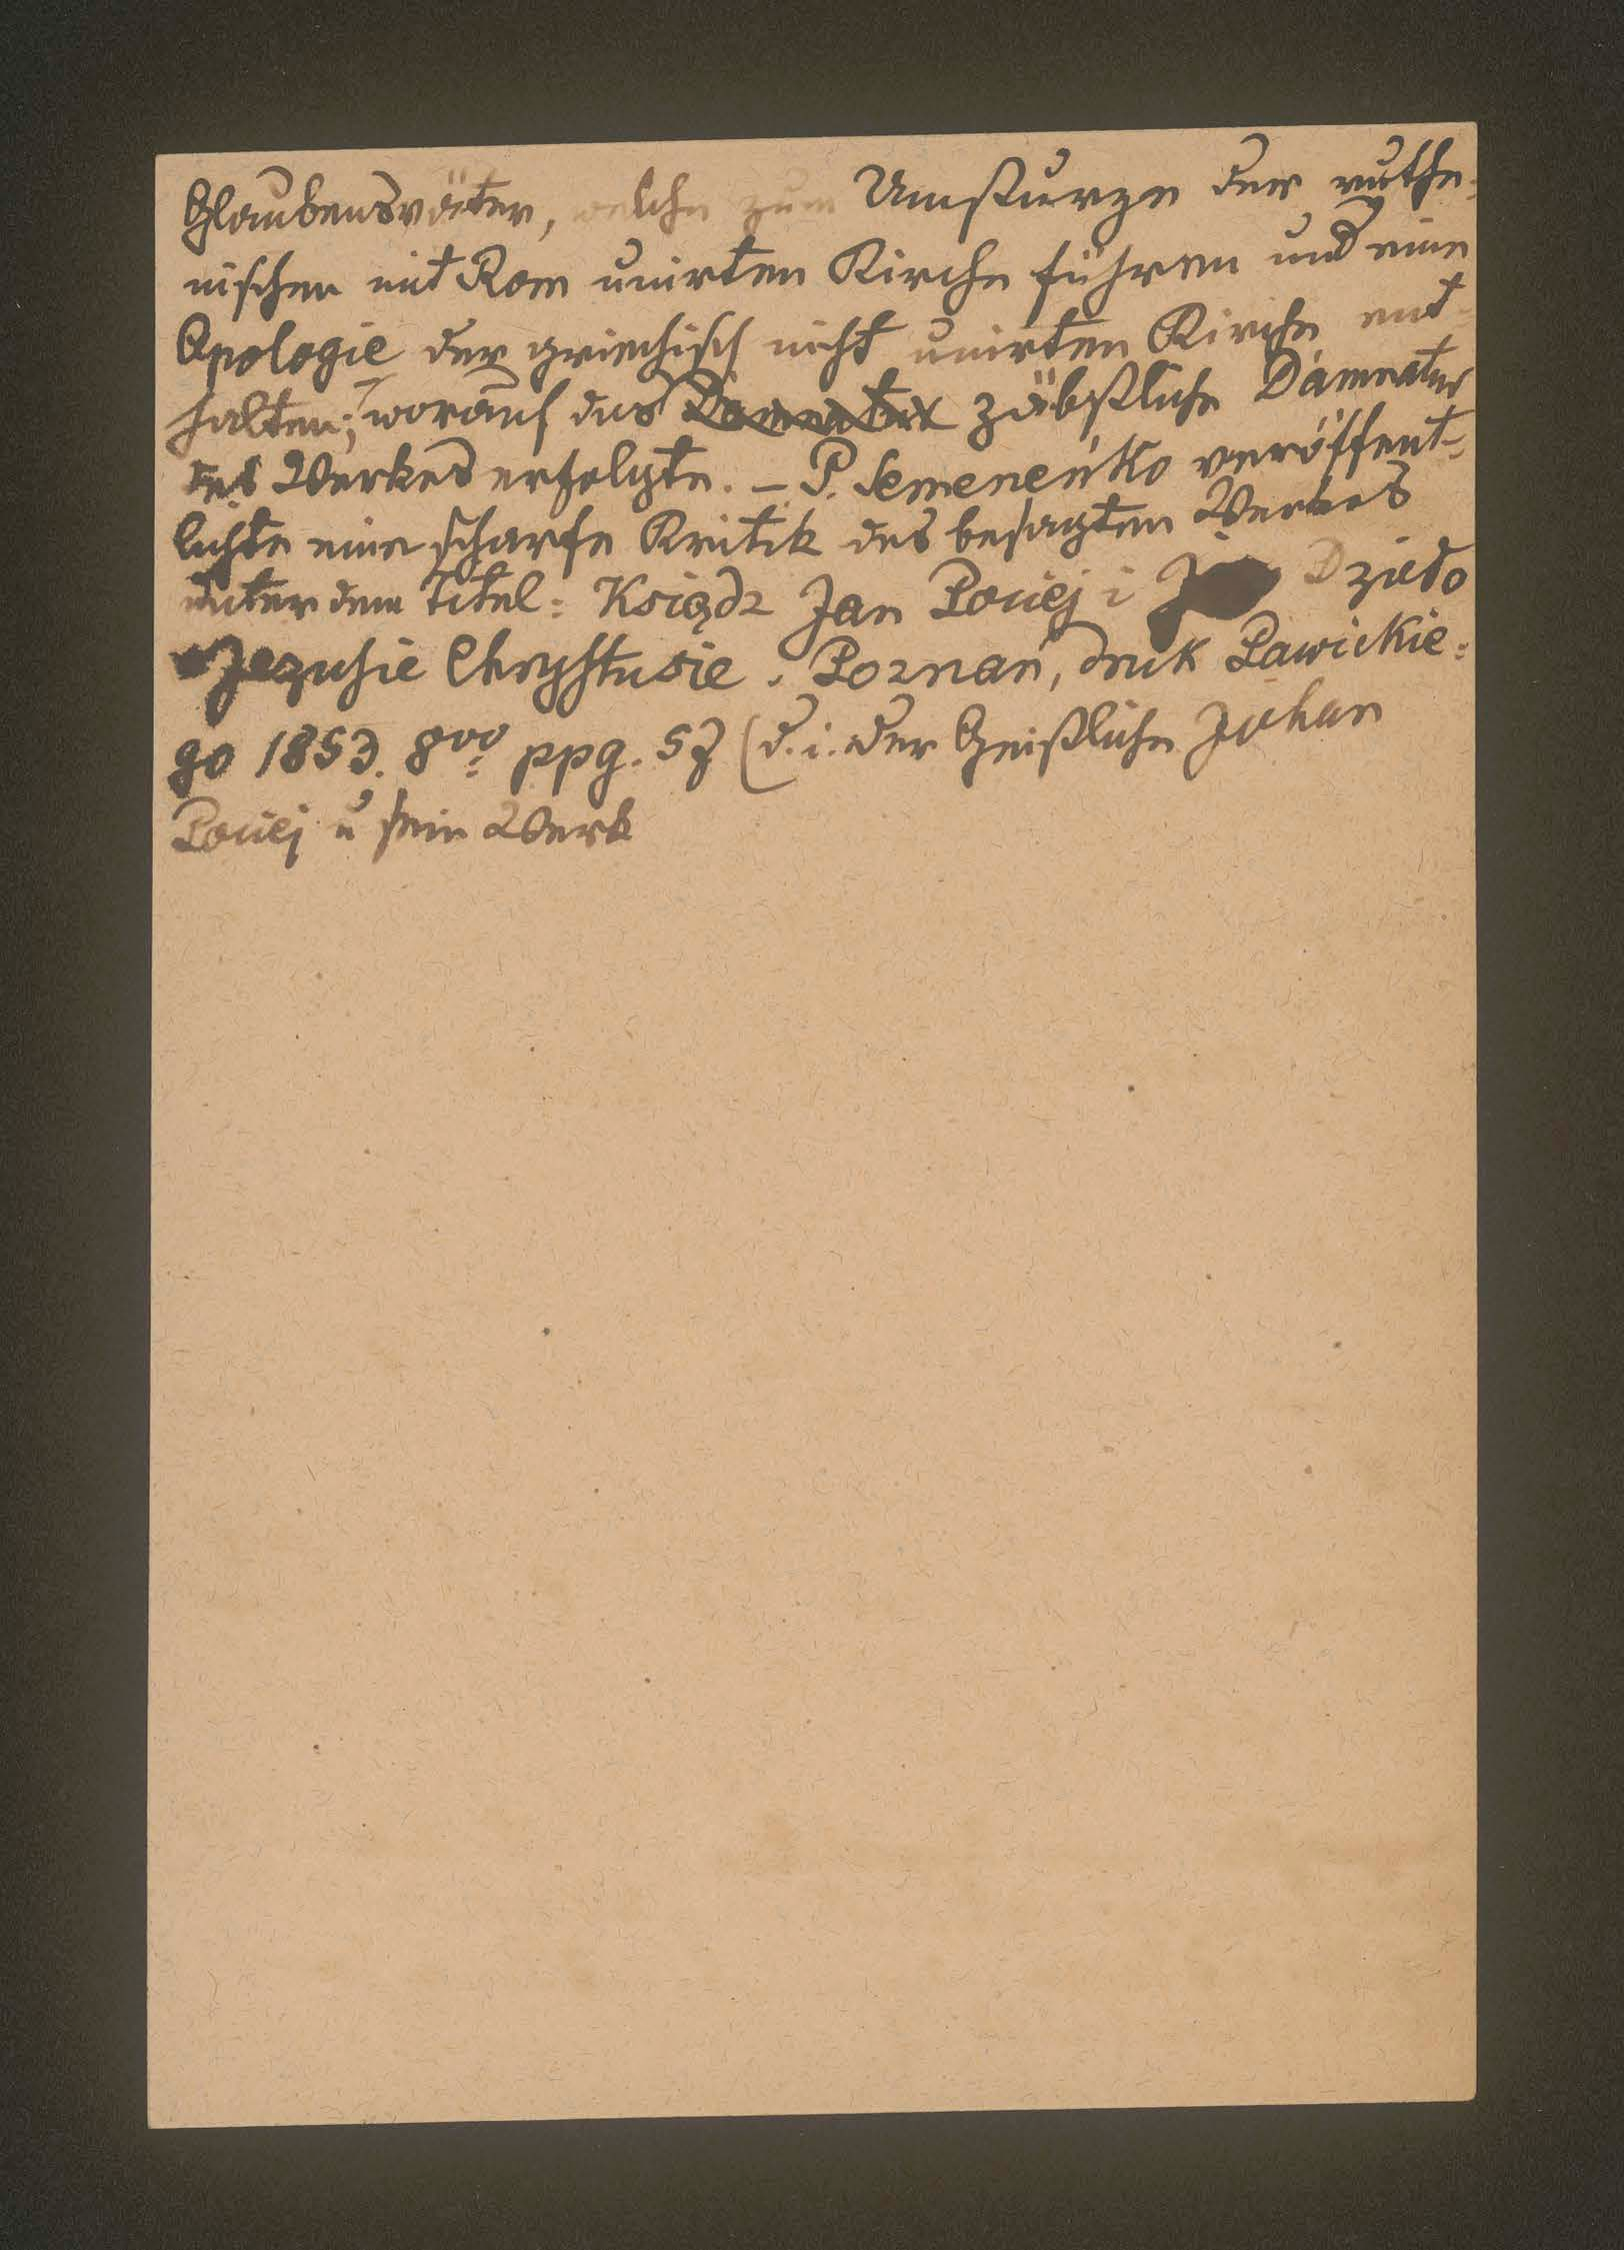 Glaubensväter, welche zum Umsturze der ruthe-
nischen mit Rom unirten Kirche führen und eine
Apologie der griechisch nicht unirten Kirche ent-
halten; worauf das päbstliche Damnatur
des Werkes erfolgte. – P. Semeneńko veröffent-
lichte eine scharfe Kritik des besagten Werkes
unter dem Titel: Ksiądz Jan Pociej i Dzieło
Jezusie Chrystusie. Poznań, druk Pawickie=
go 1853. 8vo ppg. 57 (d. i. der Geistliche Johan
Pociej u sein Werk